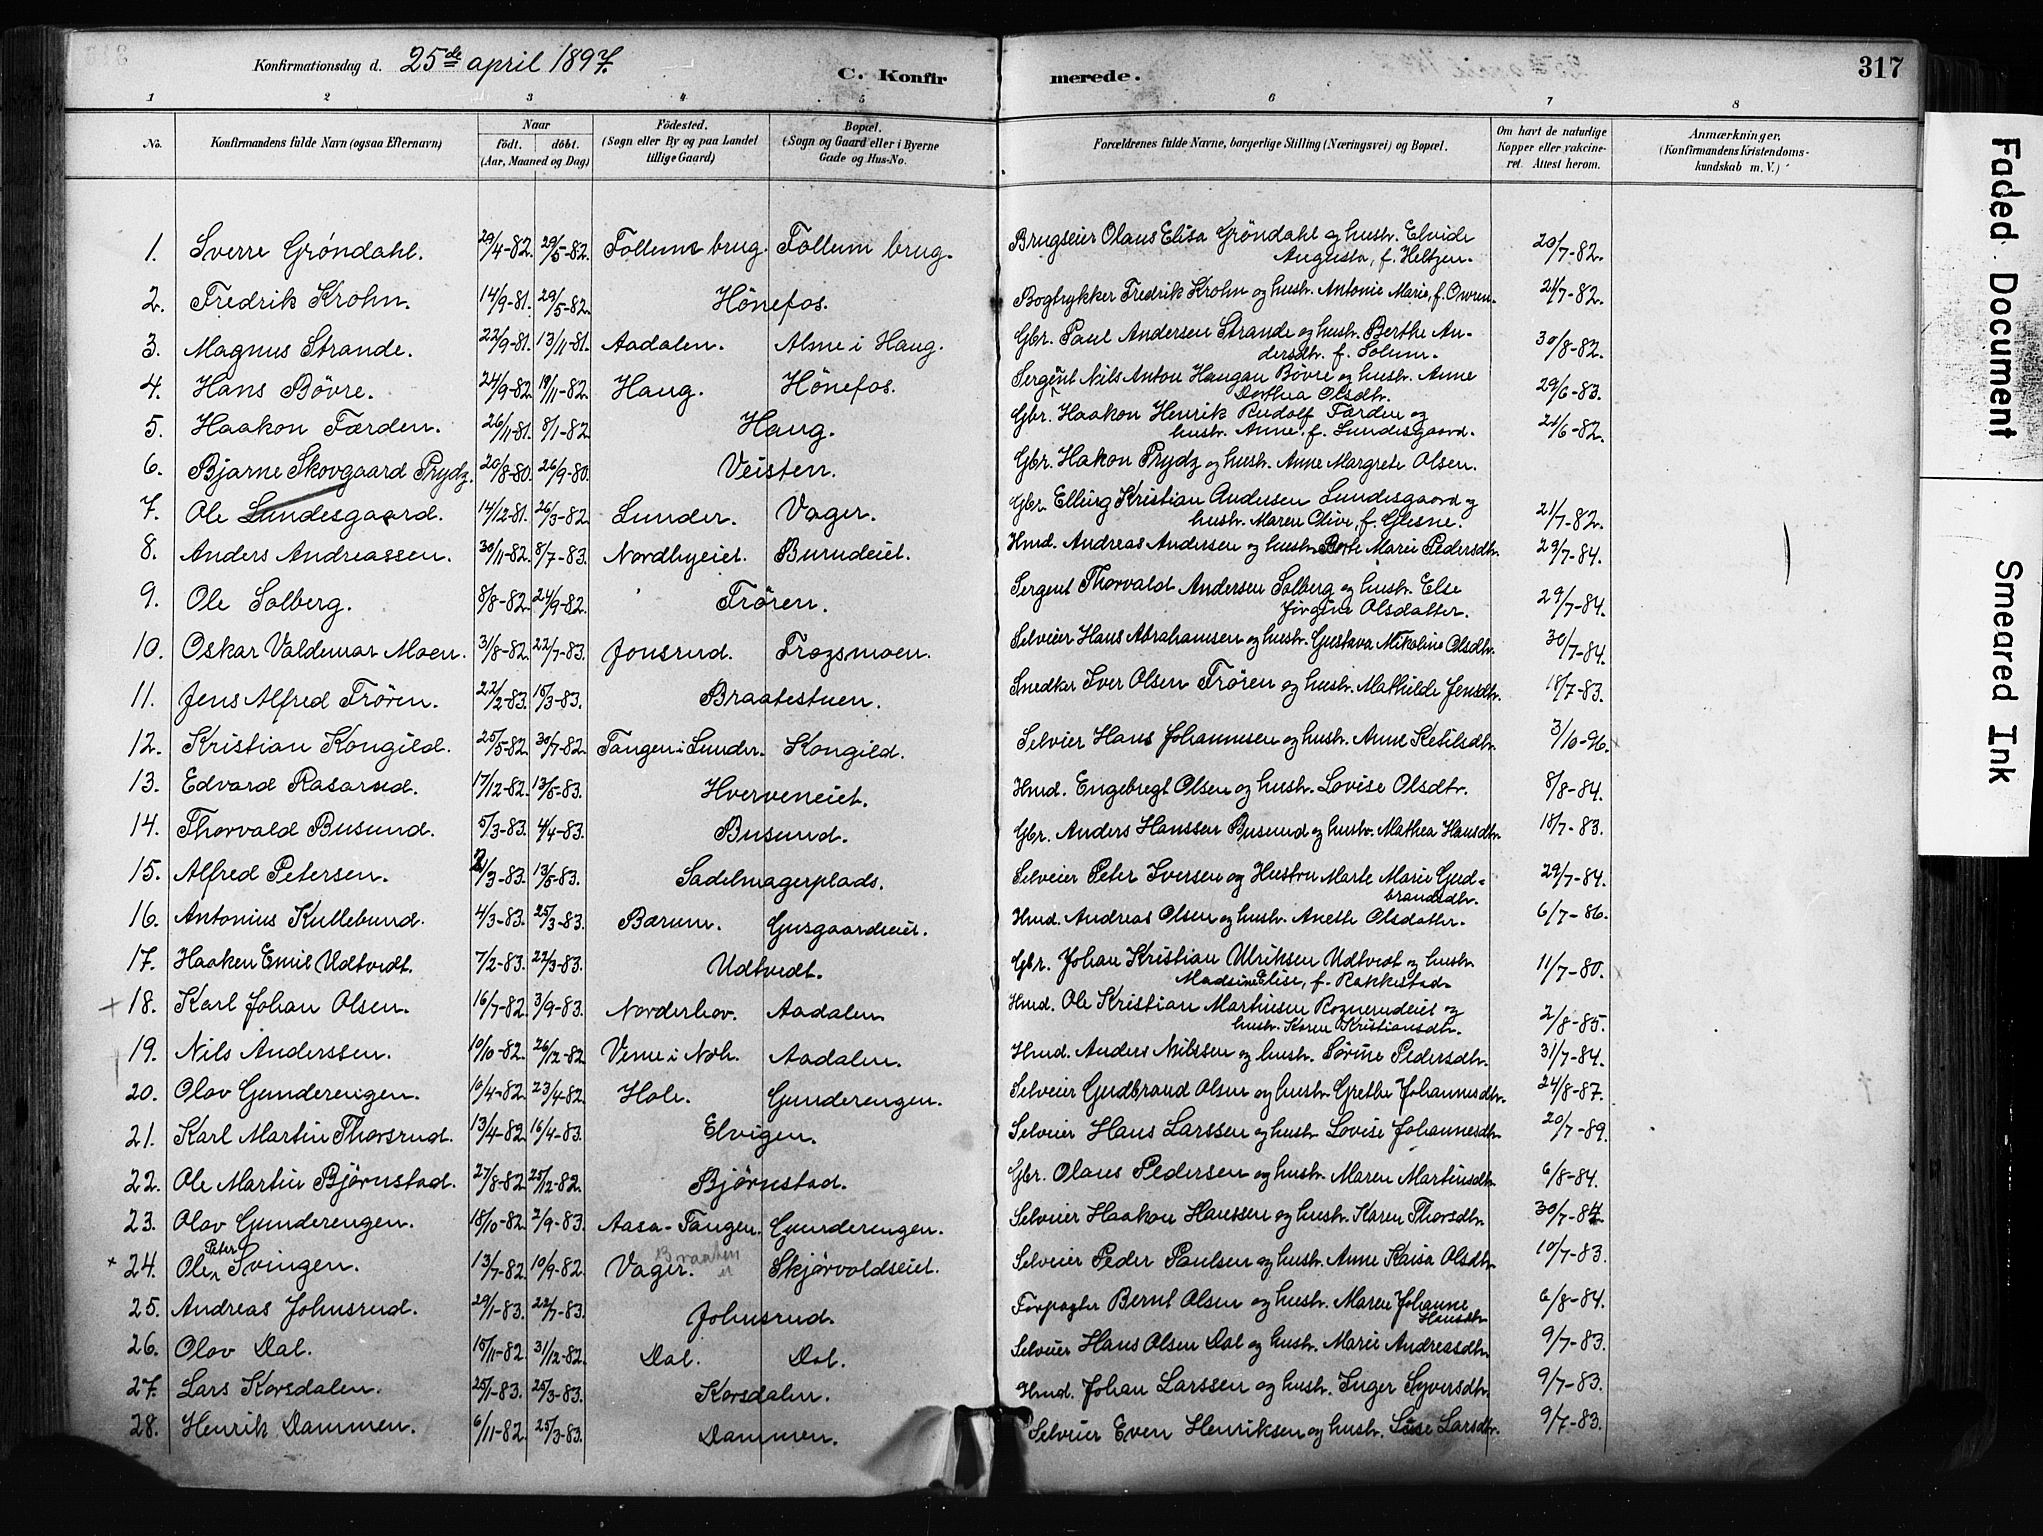 Konfirmationsdag d. 25de april 1897.
C. Konfirmerede.
317
1 2 3 4 5 6 7 8
No. Konfirmandens fulde Navn (ogsaa Efternavn) Naar født. døbt. (Aar, Maaned og Dag) Fødested. (Sogn eller By og paa Landet tillige Gaard) Bopæl. (Sogn og Gaard eller i Byerne Gade og Hus-No. Forældrenes fulde Navne, borgerlige Stilling (Næringsvei) og Bopæl. Om havt de naturlige Kopper eller vakcineret. Attest herom. Anmærkninger. (Konfirmandens Kristendomskundskab m. V.)
1. Sverre Grøndahl. 29/4-82. 29/5-82. Follum brug. Follum brug. Brugseier Olaus Elisa Grøndahl og hustr. Elvide Augusta, f. Heltzen. 20/7-82.
2. Fredrik Krohn. 14/9-81. 29/5-82. Hönefos. Bogtrykker Fredrik Krohn og hustr. Antonie Marie, f. Owren. 24/7-82.
3. Magnus Strande. 22/9-81. 13/11-81. Aadalen. Alme i Haug. Gbr. Paul Andersen Strande og hustr. Berthe Andersdtr. f. Solum. 30/8-82.
4. Hans Bövre. 24/9-82. 19/11-82. Haug. Hönefos. Sergent Nils Anton Haugan Bövre og hustr. Anne Dorthea Olsdtr. 29/6-83.
5. Haakon Færden. 26/11-81. 8/1-82. Haug. Gbr. Haakon Henrik Rudolf Færden og hustr. Anne, f. Lundesgaard. 21/6-82.
6. Bjarne Skovgaard Prydz. 20/8-80. 26/9-80. Veisten. Gbr. Hakon Prydz og hustr. Anne Margrete Olsen.
7. Ole Lundesgaard. 14/12-81. 26/3-82. Lunder. Vager. Gbr. Elling Kristian Andersen Lundesgaard og hustr. Maren Olive, f. Glesne. 21/7-82.
8. Anders Andreassen. 30/11-82. 8/7-83. Nordbyeiet. Burudeiet. Hmd. Andreas Andersen og hustr. Berte Marie Pedersdtr. 29/7-84.
9. Ole Solberg. 8/8-82. 24/9-82. Trören. Sergent Thorvald Andersen Solberg og hustr. Else Jörgine Olsdatter. 29/7-84.
10. Oskar Valdemar Moen. 31/8-82. 22/7-83. Jonsrud. Frogsmoen. Selveier Hans Abrahamsen og hustr. Gustava Mikoline Olsdtr. 30/7-84.
11. Jens Alfred Trören. 22/2-83. 15/3-83. Braatestuen. Snedker Iver Olsen Trören og hustr. Mathilde Jensdtr. 18/7-83.
12. Kristian Kongild. 25/5-82. 30/7-82. Tangen i Lunder. Kongild. Selvier Hans Johannesen og hustr. Anne Ketilsdtr. 3/10-96.
13. Edvard Rasarud. 17/12-82. 13/5-83. Hverveneiet. Hmd. Engebregt Olsen og hustr. Lovise Olsdtr. 8/8-84.
14. Thorvald Busund. 5/3-83. 4/4-83. Busund. Gbr. Anders Hanssen Busund og hustr. Mathea Hansdtr. 18/7-83.
15. Alfred Petersen. 2/3-83. 13/5-83. Sadelmagerplads. Selveier Peter Iversen og Hustru Marte Marie Gudbrandsdtr. 29/7-84.
16. Antonius Kullebund. 4/3-83. 25/3-83. Bærum. Gusgaardeiet. Hmd. Andreas Olsen og hustr. Anethe Olsdatter. 6/7-86.
17. Haaken Emil Udtvedt. 7/2-83. 22/3-83. Udtvedt. Gbr. Johan Kristian Ulriksen Udtvedt og hustr. Madsine Elise, f. Rakkestad. 11/7-80.
18. Karl Johan Olsen. 16/7-82. 3/9-83. Norderhov. Aadalen. Hmd. Ole Kristian Martinsen Rognerudeiet og hustr. Karen Kristiansdtr. 2/8-85.
19. Nils Anderssen. 10/10-82. 26/12-82. Veme i Noh. Aadalen. Hmd. Anders Nilssen og hustr. Sörine Pedersdtr. 31/7-84.
20. Olav Gunderengen. 10/4-82. 23/4-82. Hole. Gunderengen. Selveier Gudbrand Olsen og hustr. Grethe Johannesdtr. 24/8-87.
21. Karl Martin Thorsrud. 13/4-82. 16/4-83. Elvigen. Selveier Hans Larssen og hustr. Lovise Johannesdtr. 20/7-89.
22. Ole Martin Björnstad. 27/8-82. 25/12-82. Björnstad. Gbr. Olaus Pedersen og hustr. Maren Martinsdtr. 6/8-84.
23. Olav Gunderengen. 18/10-82. 2/9-83. Aasa-Tangen. Gunderengen. Selveier Haakon Hanssen og hustr. Karen Thorsdtr. 30/7-84.
24. Ole Peter Svingen. 13/7-82. 10/9-82. Vager. Braaten Skjörvoldseiet. Selveier Peder Paulsen og hustr. Anne Kaisa Olsdtr. 10/7-83.
25. Andreas Johnsrud. 29/1-83. 22/7-83. Johnsrud. Forpagter Bernt Olsen og hustr. Maren Johanne Hansdtr. 6/8-84.
26. Olav Dal. 15/11-82. 31/12-82. Dal. Dal. Selveier Hans Olsen Dal og hustr. Marie Andreasdtr. 9/7-83.
27. Lars Korsdalen. 25/1-83. 25/3-83. Korsdalen. Hmd. Johan Larssen og hustr. Inger Syversdtr. 9/7-83.
28. Henrik Dammen. 6/11-82. 25/3-83. Dammen. Selveier Even Henriksen og hustr. Larsdtr. 9/7-83.
Faded Document
Smeared Ink